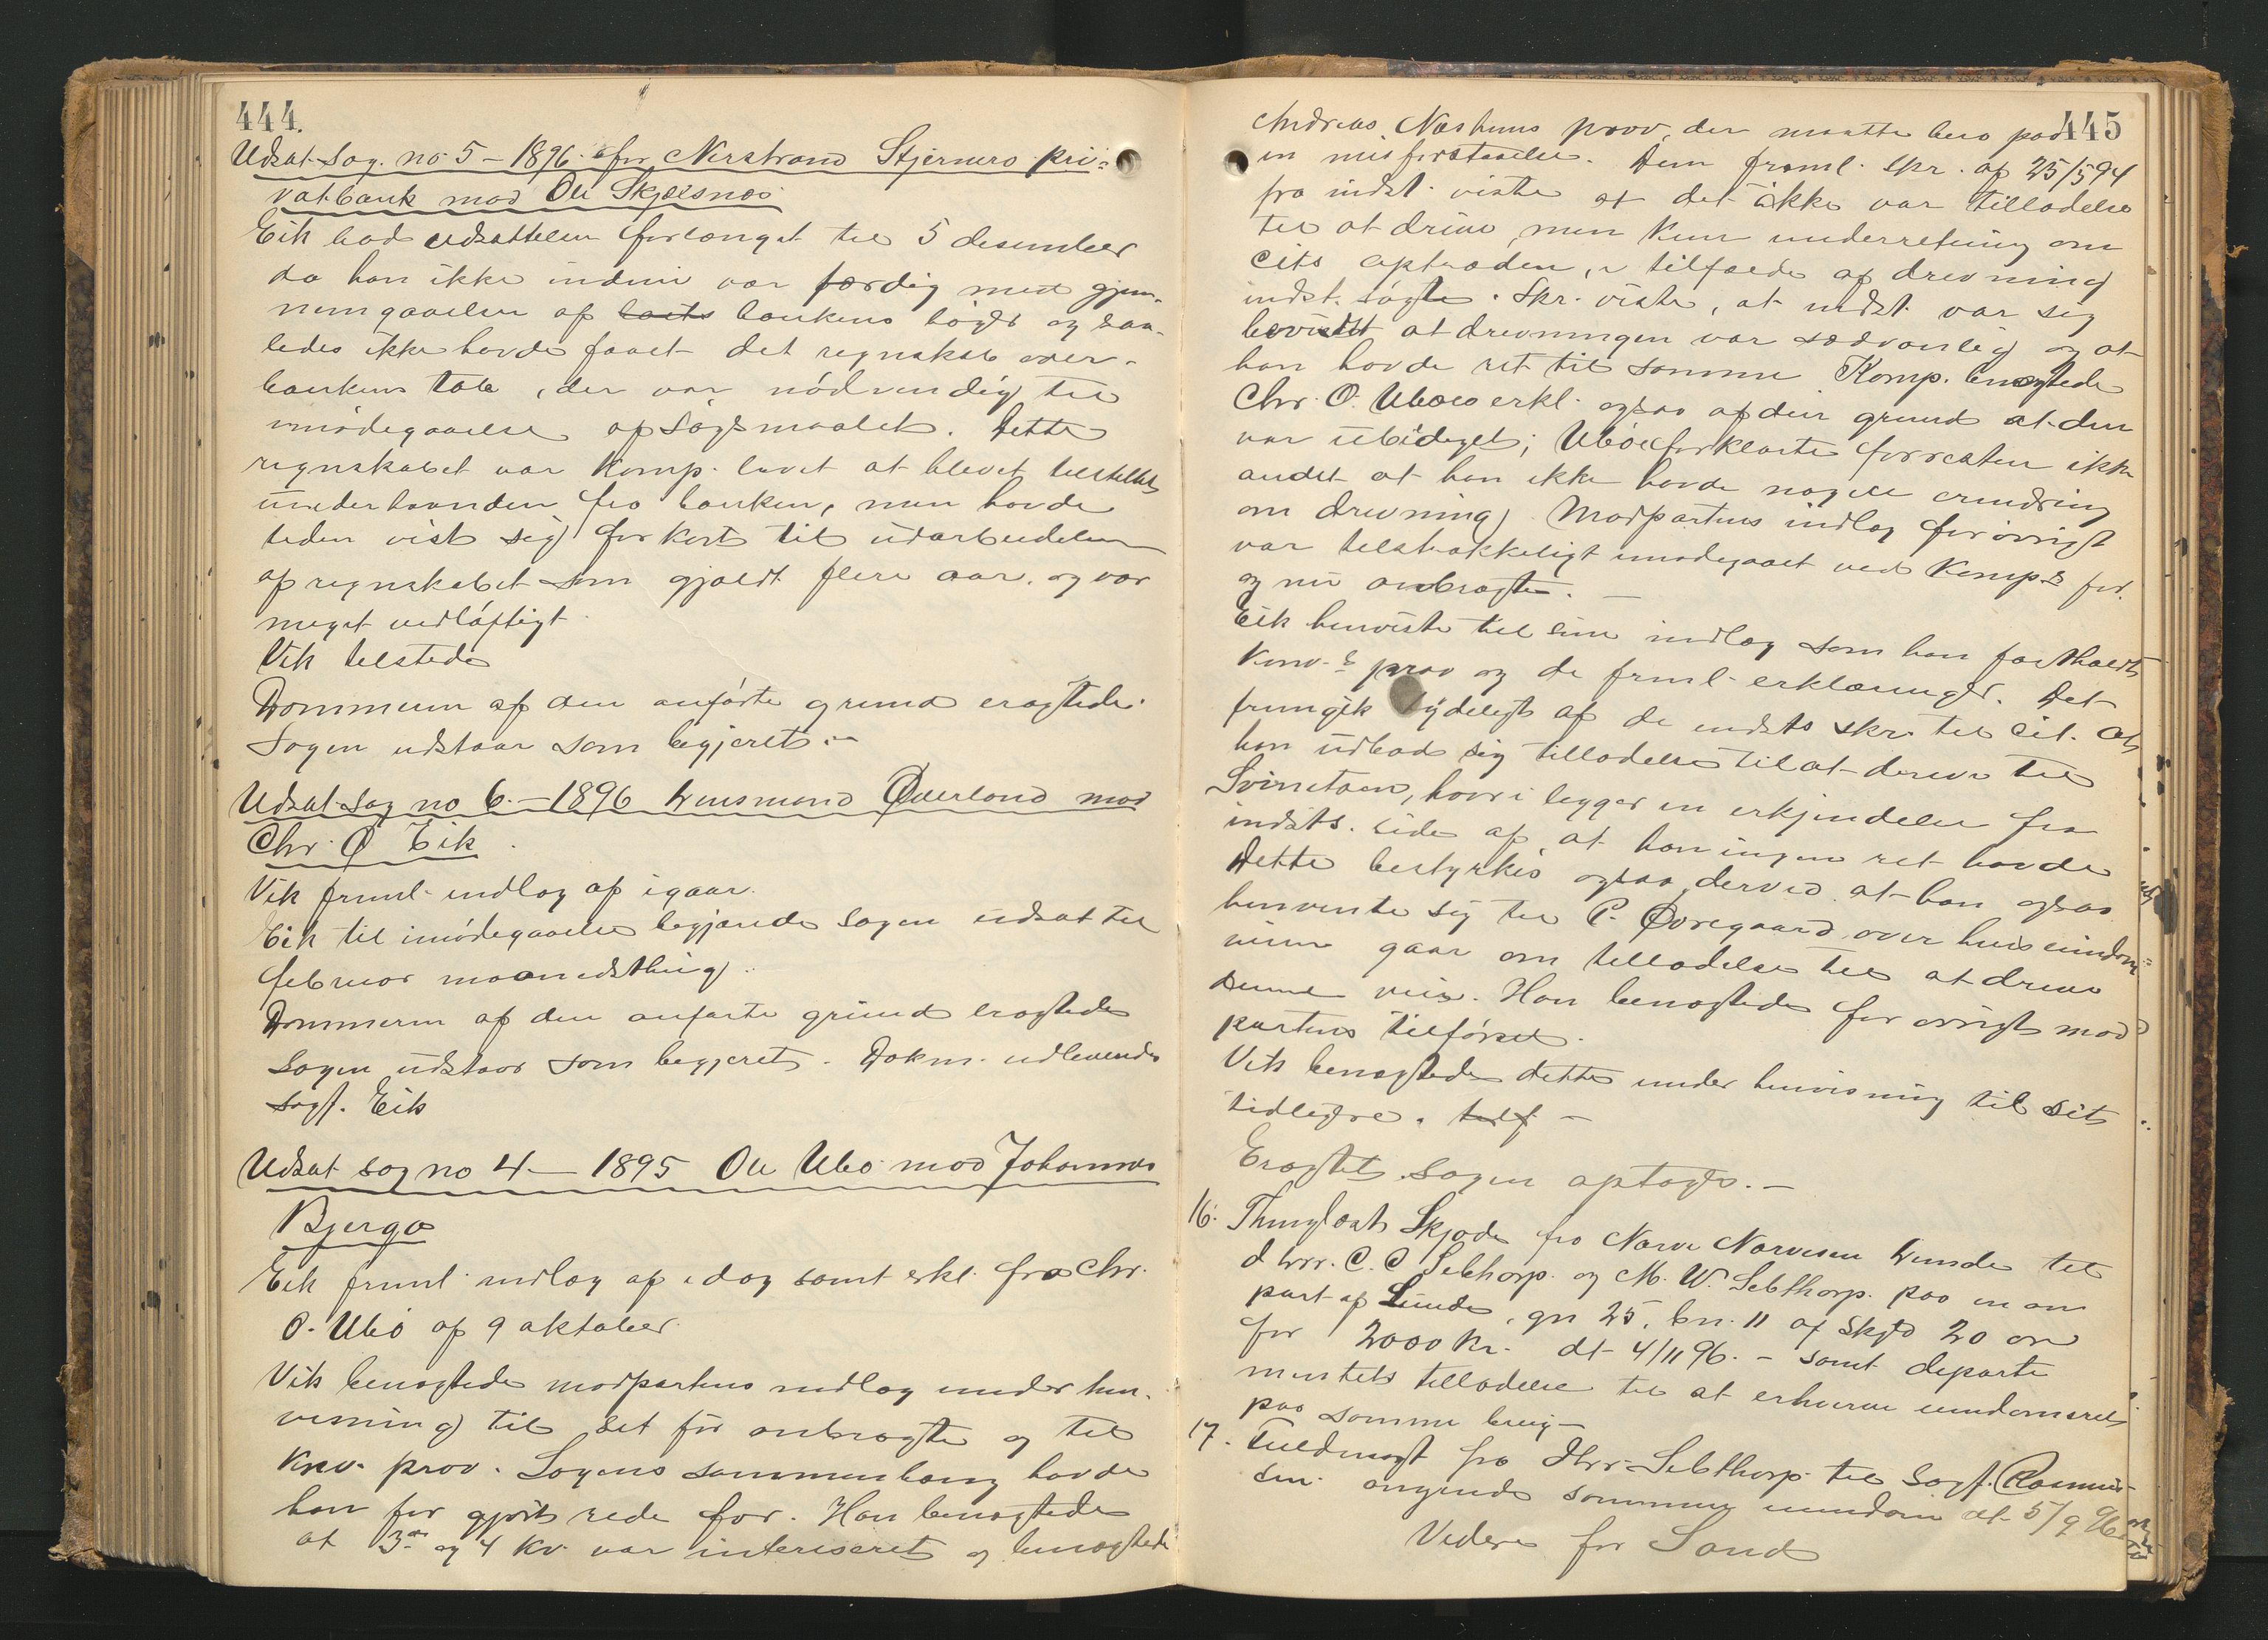 444.
Udsat Sag. no 5 – 1896. for Nerstrand Stjernerø pri-
vatbank mod Ole Skjælsnæs
Eik bad udsættelse forlænget til 5 desember
da han ikke endnu var færdig med gjen-
nemgaaelse af bankens bøger og saa-
ledes ikke havde faaet det regnskab over
bankens tab, der var nødvendig til
imødegaaelse af søgsmaalet. Dette
regnskabet var Komp. lovet at blevet tilstillet
underhaanden fra banken, men havde
tiden vist sig for kort til udarbeidelsen
af regnskabet som gjældt flere aar, og var
meget vidløftigt.
Vik tilstede
Dommeren af den anførte grund eragtede:
Sagen udstaar som begjæret. –
Udsat Sag no 6. – 1896 Lensmand Øverland mod
Chr. O Eik.
Vik freml. indlæg af igaar.
Eik til imødegaaelse begjærede sagen udsat til
februar maanedsthing.
Dommeren af den anførte grund eragtede
Sagen udstaar som begjæret. Dokm. udlevendes
Sagf. Eik
Udsat sag no 4 – 1895 Ole Ubø mod Johannes
Bjerga
Eik freml. indlæg af idag samt erkl. fra Chr.
O. Ubø af 9 aktober.
Vik benægtede modpartens indlæg under hen-
visning til sit før anbragte og til
prov. Sagens sammenhæng havde
han før gjort rede for. Han benægtede
at 3die og 4 Kv. var interiseret og benægtede
445
Andreas Næshims prov, der maatte bero paa
en misforstaaelse. Den freml. skr. af 25/5 94
fra indst. viste at det ikke var tilladelse
til at drive, men kun underretning om
cits optræden, i tilfælde af drevning
indst. søgte. Skr. viste, at indst. var sig
bevidst at drevningen var sædvanlig og at
han havde ret til samme. Komp. benægtede
Chr. O. Ubøes erkl. ogsaa af den grund at den
var ubediget; Ubøe forklarte forresten ikke
andet at han ikke havde nogen erindring
om drevning. Modpartens indlæg forøvrigt
var tilstrækkeligt imødegaaet ved Komps før
og nu anbragte. –
Eik henviste til sine indlæg som han fastholdt
prov og de freml. erklæringer. Det
fremgik tydeligt af de indsts skr. til cit. at
han udbad sig tilladelse til at drive til
Svinstøen, hvori ligger en erkjendelse fra
indsts. side af, at han ingen ret havde
Dette bestyrkes ogsaa derved at han ogsaa
henvente sig til P. Øvregaard over hvis eiendom
gaar om tilladelse til at drive
denne veie. Han benægtede for øvrigt mod
partens tilførsel.
Vik benægtede dette under henvisning til sit
tidligere. –
Eragtet Sagen aptages. –
16. Thinglæst Skjøde fra Narve Narvesen Lunde til
d Hrr. C. O Sebthorp. og M. W. Sebthorp. paa en an
part af Lunde, gn 25, bn. 11 af Skyld 20 øre
for 2000 Kr. dt 4/11 96. – samt departe
mentets tilladelse til at erhverve eiendomsret
paa samme brug –
17. Fuldmagt fra Hrr. Sebthorp til Sagf. Rasmus-
sen angaende samme eiendom dt. 5/9 96
Videre for Sand